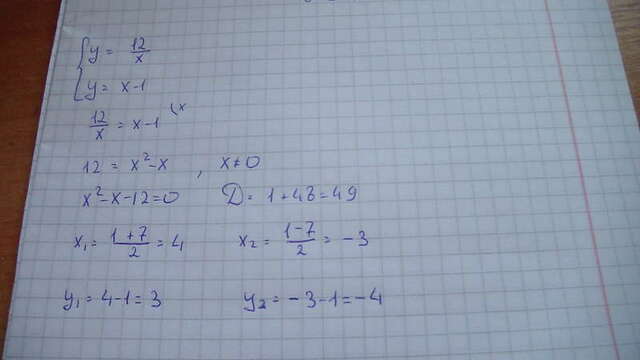 { y = 12/x
y = x-1
12/x = x-1 (x
12 = x²-x , x≠0
x²-x-12=0 D = 1+48=49
x₁ = (1+7)/2 = 4 x₂ = (1-7)/2 = -3
y₁ = 4-1=3 y₂ = -3-1=-4